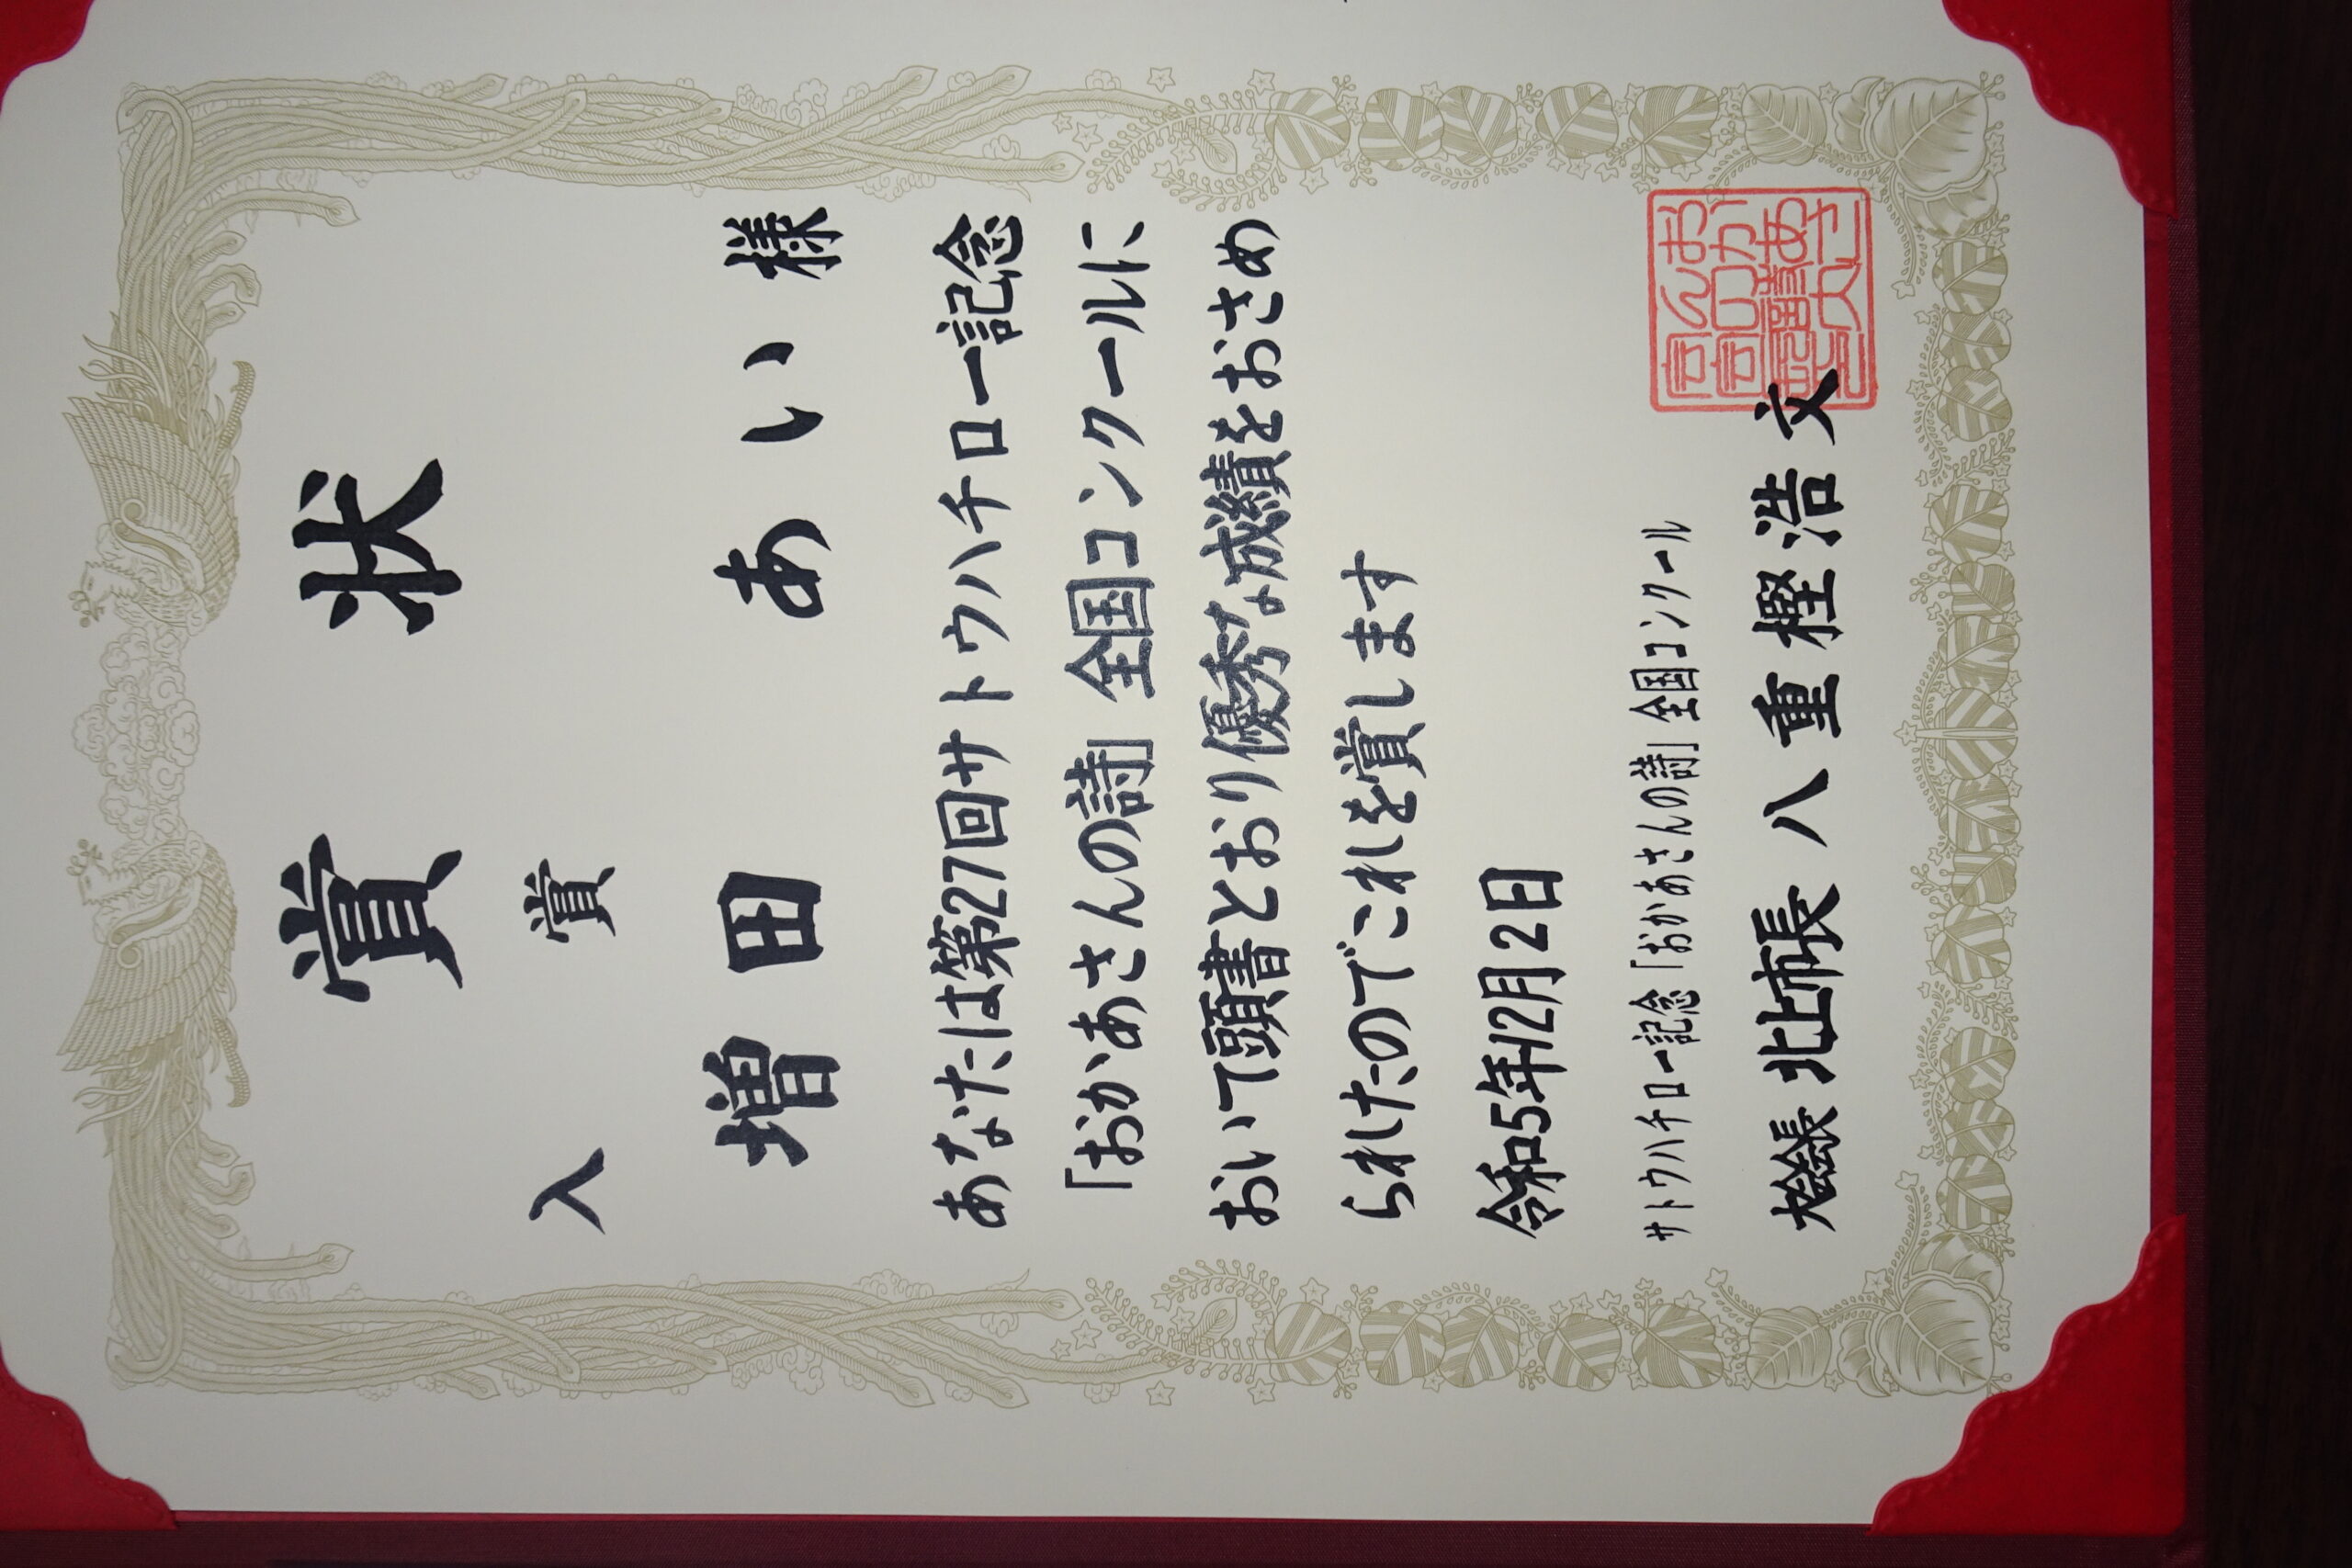 賞状
入賞
増田あい様
あなたは第27回サトウハチロー記念
「おかあさんの詩」全国コンクールに
おいて頭書とおり優秀な成績をおさめ
られたのでこれを賞します
令和5年12月2日
サトウハチロー記念「おかあさんの詩」全国コンクール
大会会長 北上市長 八重樫浩文